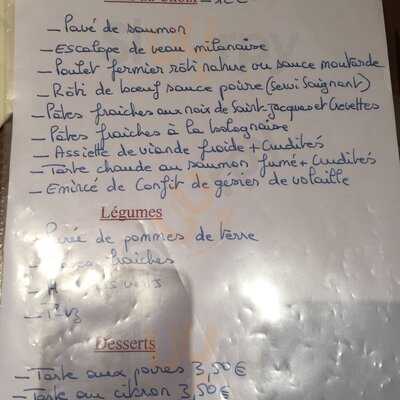 _ Pavé de saumon
_ Escalope de veau milanaise
_ Poulet fermier rôti nature ou sauce moutarde
_ Rôti de bœuf sauce poivre (servi Saignant)
_ Pâtes fraîches aux noix de Saint-Jacques et Crevettes
_ Pâtes fraîches à la bolognaise
_ Assiette de viande froide + Crudités
_ Tarte chaude au saumon fumé + Crudités
_ Emincé de Confit de gésier de volaille
Légumes
Purée de pommes de terre
fraîches
_ Riz
Desserts
_ Tarte aux poires 3,50€
_ Tarte au citron 3,50€